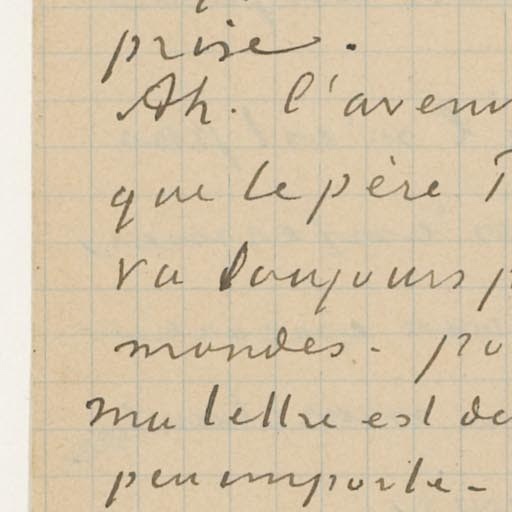 prise.
Ah. l'aven
que le père T
va toujours p
mondes - po
ma lettre est de
peu importe -